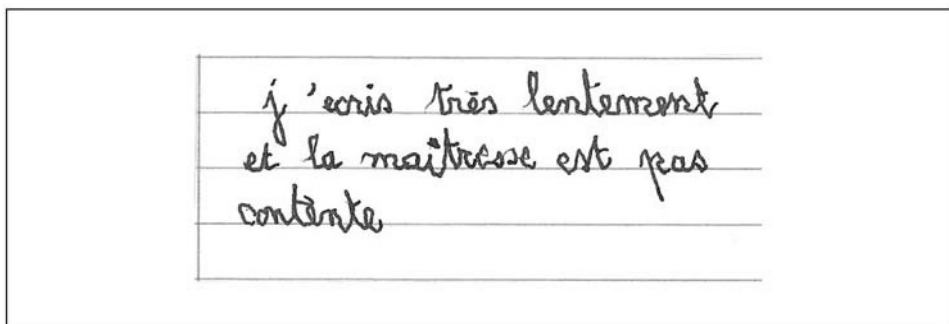 j'ecris très lentement
et la maîtresse est pas
contente